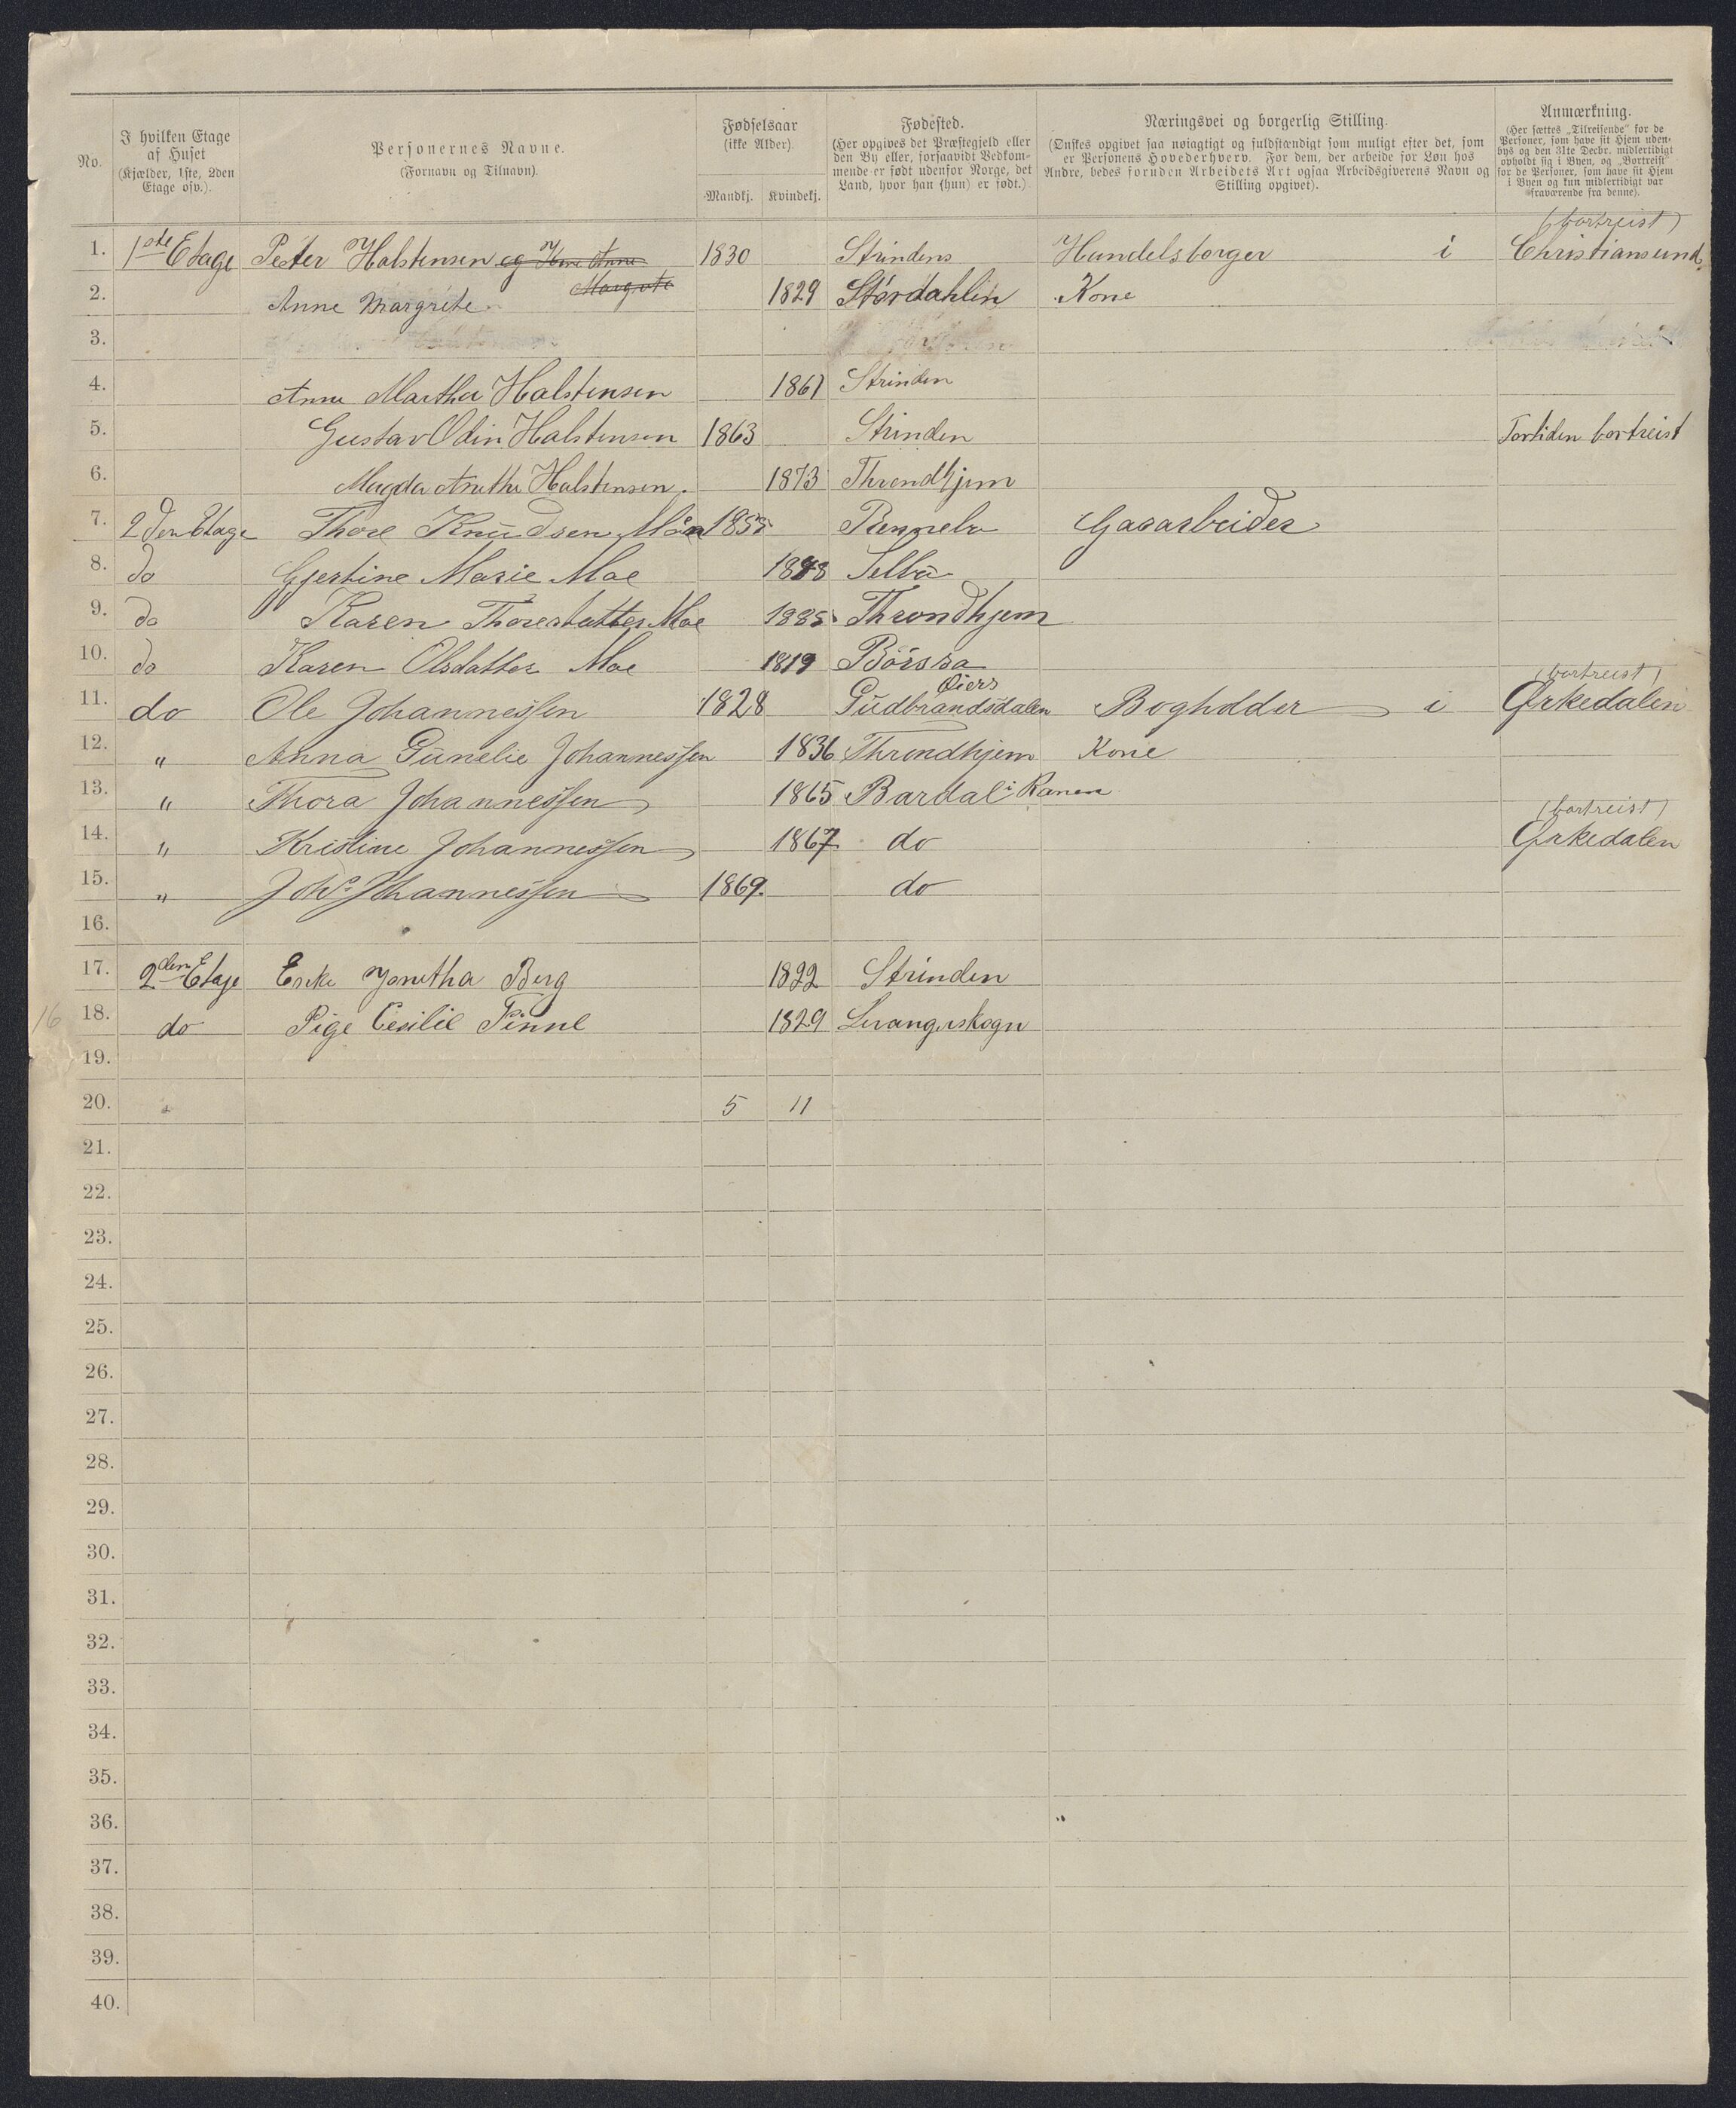 No.
I hvilken Etage
af Huset
(Kjælder, 1ste, 2den
Etage osv.).
Personernes Navne.
(Fornavn og Tilnavn).
Fødselsaar
(ikke Alder).
Mandkj. Kvindekj.
Fødested.
(Her opgives det Præstegjeld eller
den By eller, forsaavidt Vedkom-
mende er født udenfor Norge, det
Land, hvor han (hun) er født.)
Næringsvei og borgerlig Stilling.
(Ønskes opgivet saa nøiagtigt og fuldstændigt som muligt efter det, som
er Personens Hovederhverv. For dem, der arbeide for Løn hos
Andre, bedes foruden Arbeidets Art ogsaa Arbeidsgiverens Navn og
Stilling opgivet).
Anmærkning.
(Her sættes „Tilreisende" for de
Personer, som have sit Hjem uden-
bys og den 31te Decbr. midlertidigt
opholdt sig i Byen, og „Bortreist"
for de Personer, som have sit Hjem
i Byen og kun midlertidigt var
fraværende fra denne).
(bortreist)
1. 1ste Etage Peter Halstensen og Kone Anne 1830 Strindens Handelsborger i Christiansund
Margrete
2. Anne Margrete 1829 Størdahlen Kone
3.
4. Anne Martha Halstensen 1861 Strinden
5. Gustav Odin Halstensen 1863 Strinden Fortiden bortreist
6. Magda Anethe Halstensen. 1873 Throndhjem
7. 2den Etage Thore Knudsen Moe 1855 Rennebu Gasarbeider
8. do Gjertine Marie Moe 1848 Selbu
9. do Karen Thoresdatter Moe 1885 Throndhjem
10. do Karen Olsdatter Moe 1819 Börsea
Øiers (bortreist)
11. do Ole Johannessen 1828 Gudbrandsdalen Bogholder i Ørkedalen
12. " Anna Gunelie Johannessen 1836 Throndhjem Kone
13. " Thora Johannessen 1865 Bardal i Ranen
(bortreist)
14. " Kristine Johannessen 1867 do Ørkedalen
15. " Johs Johannessen 1869. do
16.
17. 2den Etage Enke Jonetha Berg 1822 Strinden
16
18. do Pige Cesilie Finne 1829 Levangerskogn
19.
20. 5 11
21.
22.
23.
24.
25.
26.
27.
28.
29.
30.
31.
32.
33.
34.
35.
36.
37.
38.
39.
40.